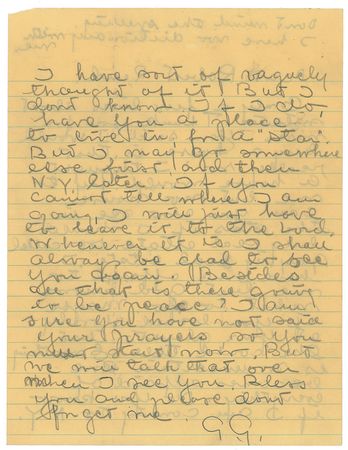 Dont mind the spelling
I have no dictionary with
me.
I have sort of vaguely
thought of it. But I
dont know. If I do,
have you a place
to live in, for a "star".
But I may go somewhere
else first, and then
N.Y. later. If you
cannot tell where I am
going, I will just have
to leave it to the Lord.
Whenever it is I shall
always be glad to see
you again. Besides
see that is there going
to be peace? I am
sure you have not said
your prayers so you
must start now. But
we will talk that over
when I see you. Bless
you and please dont
forget me.
G.G.